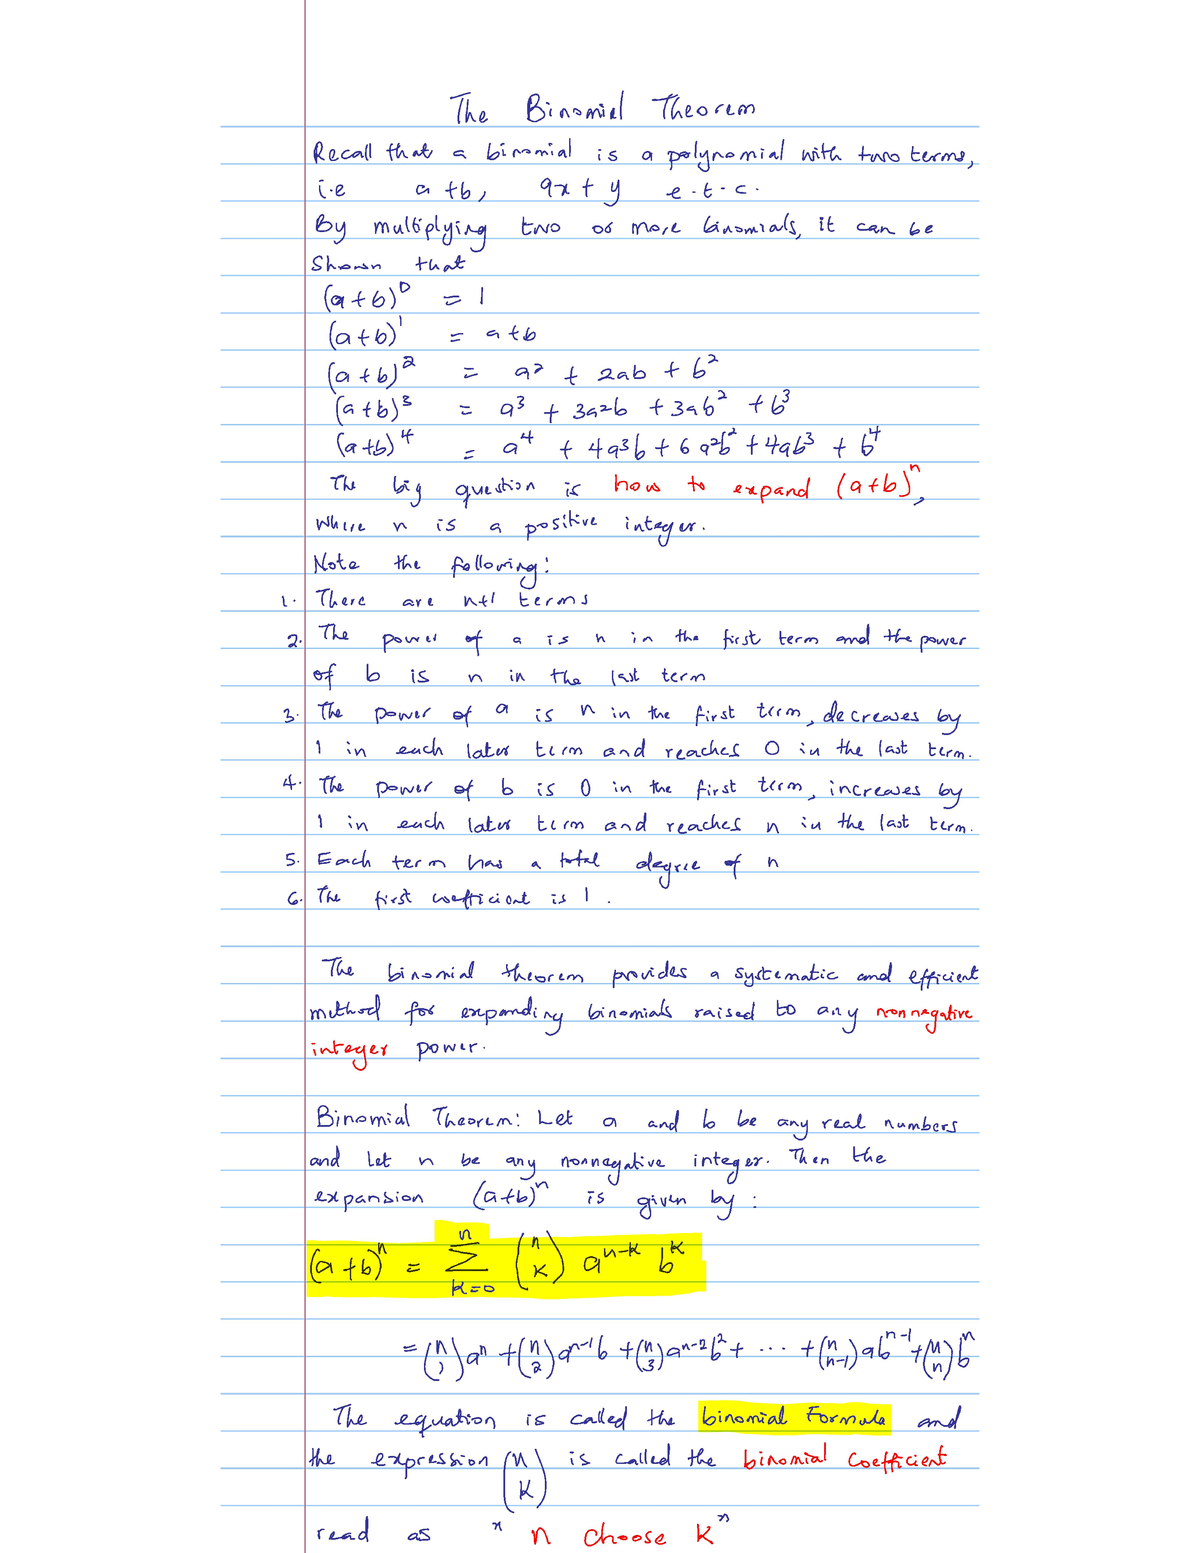 The Binomial Theorem
Recall that a binomial is a polynomial with two terms,
i.e a+b, 9x+y e.t.c.
By multiplying two or more binomials, it can be
Shown that
(a+b)⁰ = 1
(a+b)¹ = a+b
(a+b)² = a² + 2ab + b²
(a+b)³ = a³ + 3a²b + 3ab² + b³
(a+b)⁴ = a⁴ + 4a³b + 6a²b² + 4ab³ + b⁴
The big question is how to expand (a+b)ⁿ,
Where n is a positive integer.
Note the following:
1. There are n+1 terms
2. The power of a is n in the first term and the power
of b is n in the last term
3. The power of a is n in the first term, decreases by
1 in each later term and reaches 0 in the last term.
4. The power of b is 0 in the first term, increases by
1 in each later term and reaches n in the last term.
5. Each term has a total degree of n
6. The first coefficient is 1.
The binomial theorem provides a systematic and efficient
method for expanding binomials raised to any nonnegative
integer power.
Binomial Theorem: Let a and b be any real numbers
and let n be any nonnegative integer. Then the
expansion (a+b)ⁿ is given by:
(a+b)ⁿ = Σ_{k=0}^{n} (n k) a^{n-k} b^k
= (n 1)aⁿ + (n 2)a^{n-1}b + (n 3)a^{n-2}b² + ... + (n n-1)ab^{n-1} + (n n)bⁿ
The equation is called the binomial Formula and
the expression (n k) is called the binomial Coefficient
read as "n choose k"